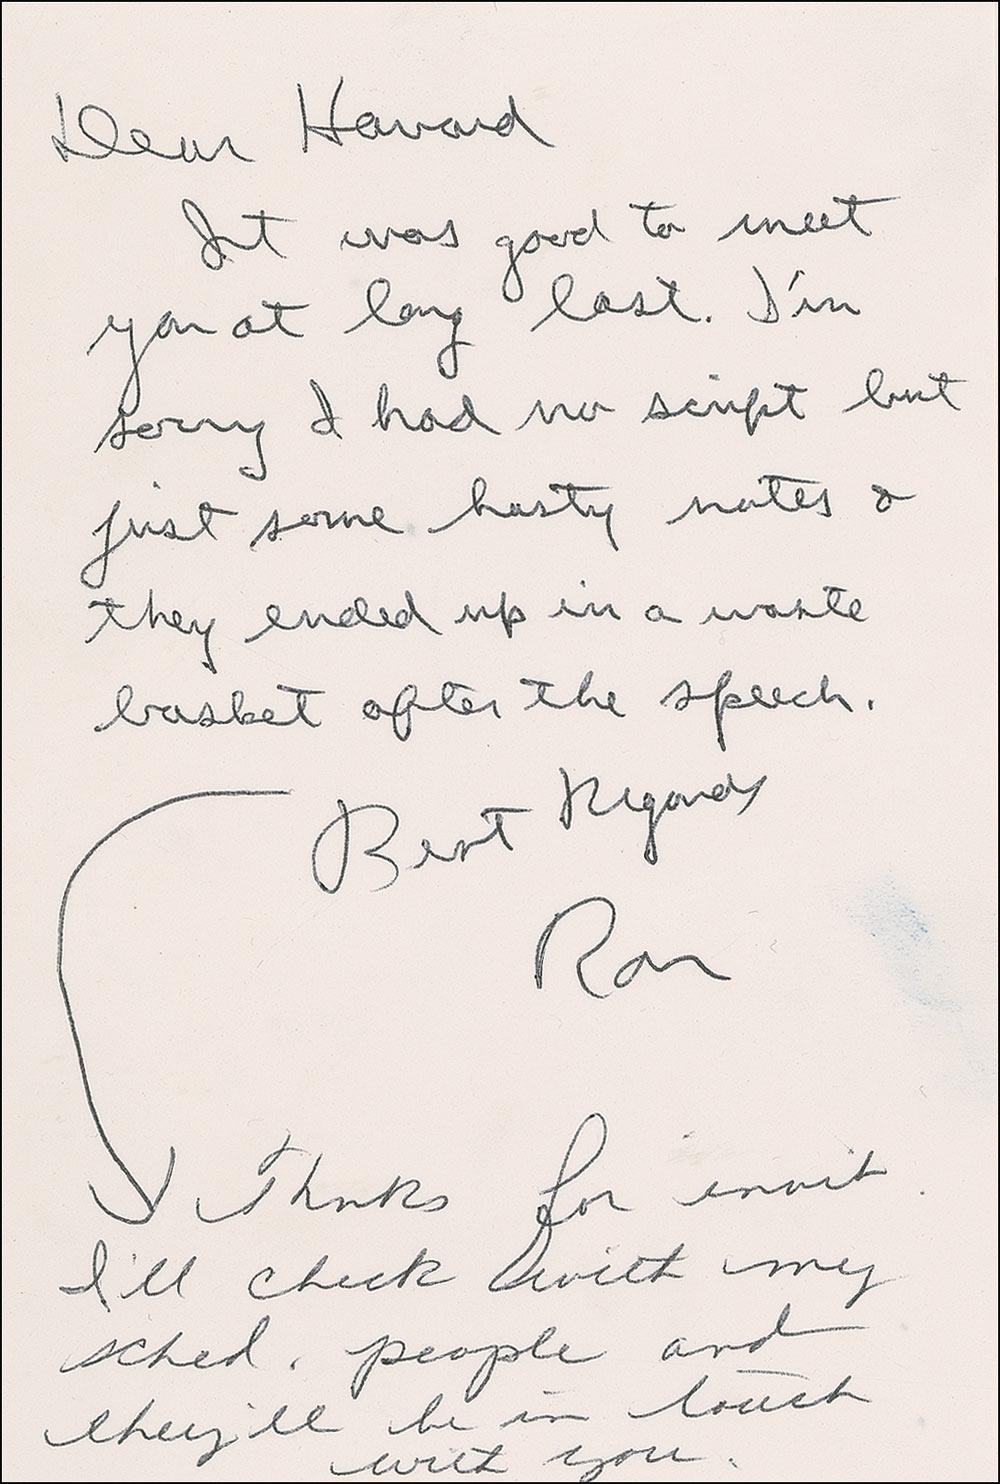 Dear Havard
It was good to meet
you at long last. I'm
sorry I had no script but
just some hasty notes &
they ended up in a waste
basket after the speech.
Best Regards
Ron
Thnks for invit.
I'll check with my
sched. people and
they'll be in touch
with you.